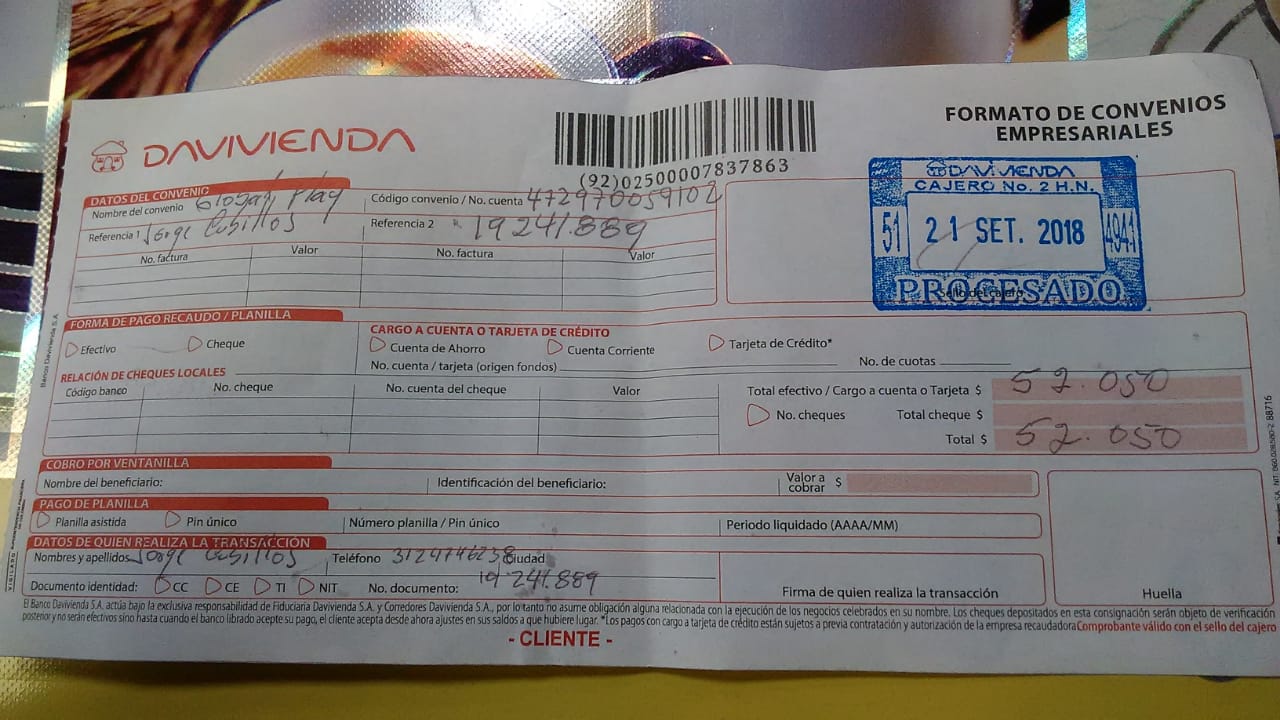 DAVIVIENDA
(92)02500007837863
FORMATO DE CONVENIOS
EMPRESARIALES
DAVIVIENDA
CAJERO No. 2 H.N.
51 21 SET. 2018 4941
PROCESADO
Sello del cajero
DATOS DEL CONVENIO
Nombre del convenio Play Código convenio / No. cuenta 472970059102
Referencia 1 Jorge Cubillos Referencia 2 19241.889
No. factura Valor No. factura Valor
FORMA DE PAGO RECAUDO / PLANILLA
Efectivo Cheque
CARGO A CUENTA O TARJETA DE CRÉDITO
Cuenta de Ahorro Cuenta Corriente Tarjeta de Crédito*
No. cuenta / tarjeta (origen fondos) No. de cuotas
RELACIÓN DE CHEQUES LOCALES
Código banco No. cheque No. cuenta del cheque Valor
Total efectivo / Cargo a cuenta o Tarjeta $ 52.050
No. cheques Total cheque $
Total $ 52.050
COBRO POR VENTANILLA
Nombre del beneficiario: Identificación del beneficiario: Valor a cobrar $
PAGO DE PLANILLA
Planilla asistida Pin único Número planilla / Pin único Periodo liquidado (AAAA/MM)
DATOS DE QUIEN REALIZA LA TRANSACCIÓN
Nombres y apellidos Jorge Cubillos Teléfono 3124746238 Ciudad
Documento identidad: CC CE TI NIT No. documento: 19241.889
Firma de quien realiza la transacción Huella
El Banco Davivienda S.A. actúa bajo la exclusiva responsabilidad de Fiduciaria Davivienda S.A. y Corredores Davivienda S.A., por lo tanto no asume obligación alguna relacionada con la ejecución de los negocios celebrados en su nombre. Los cheques depositados en esta consignación serán objeto de verificación
posterior y no serán efectivos sino hasta cuando el banco librado acepte su pago, el cliente acepta desde ahora ajustes en sus saldos a que hubiere lugar. *Los pagos con cargo a tarjeta de crédito están sujetos a previa contratación y autorización de la empresa recaudadora Comprobante válido con el sello del cajero
- CLIENTE -
Banco Davivienda S.A